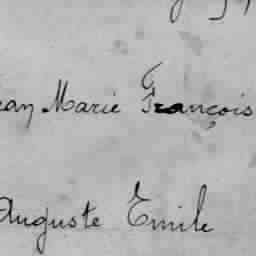 ean Marie François
Auguste Emile